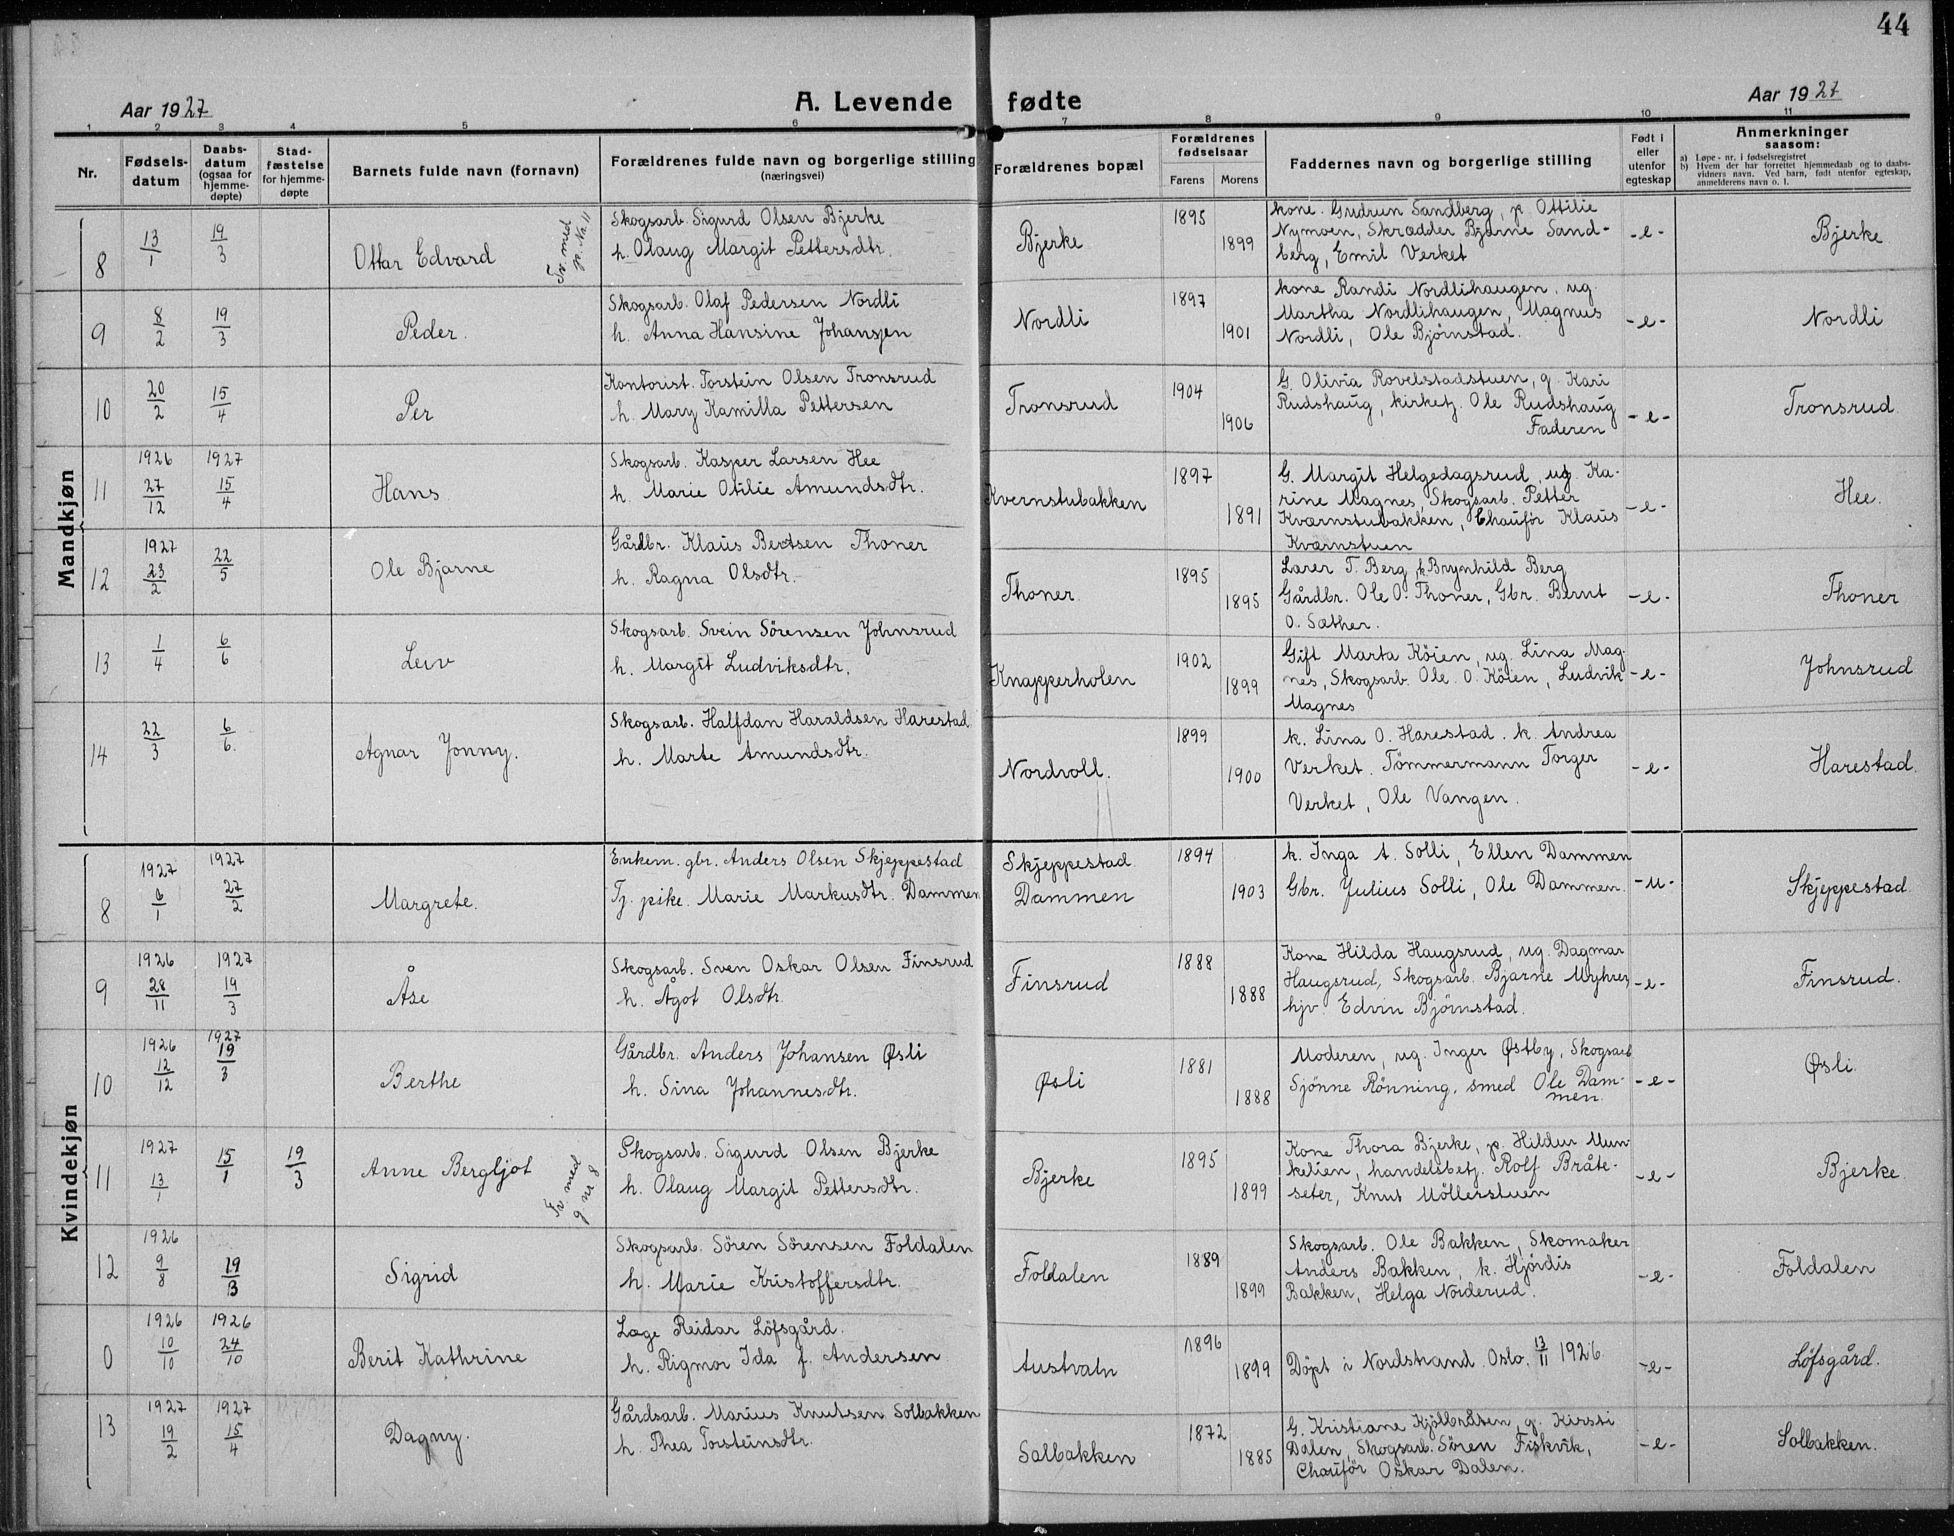 44
Aar 1927
A. Levende fødte
Aar 1927
1 2 3 4 5 6 7 8 9 10 11
Nr.
Fødsels-
datum
Daabs-
datum
(ogsaa for
hjemme-
døpte)
Stad-
fæstelse
for hjemme-
døpte
Barnets fulde navn (fornavn)
Forældrenes fulde navn og borgerlige stilling
(næringsvei)
Forældrenes bopæl
Forældrenes
fødselsaar
Farens Morens
Faddernes navn og borgerlige stilling
Født i
eller
utenfor
egteskap
Anmerkninger
saasom:
a) Løpe-nr. i fødselsregistret
b) Hvem der har forrettet hjemmedaab og to daabs-
vidners navn. Ved barn, født utenfor egteskap,
anmelderens navn o. l.
Mandkjøn
8 13/1 19/3 Ottar Edvard
Tv. med
p. No. 11
Skogsarb. Sigurd Olsen Bjerke
h. Olaug Margit Pettersdtr.
Bjerke 1895 1899
kone. Gudrun Sandberg, p. Ottilie
Nymoen, Skrædder Bjarne Sand-
berg, Emil Verket
-e- Bjerke
9 8/2 19/3 Peder.
Skogsarb. Olaf Pedersen Nordli
h. Anna Hansine Johansen
Nordli 1897 1901
kone Randi Nordlihaugen, ug.
Martha Nordlihaugen, Magnus
Nordli, Ole Bjørnstad.
-e- Nordli
10 20/2 15/4 Per
Kontorist. Torstein Olsen Tronsrud
h. Mary Kamilla Pettersen
Tronsrud 1904 1906
G. Olivia Rovelstadstuen, g. Kari
Rudshaug, kirketj. Ole Rudshaug
Faderen
-e- Tronsrud
11 1926 27/12 1927 15/4 Hans
Skogsarb. Kasper Larsen Hee
h. Marie Otilie Amundsdtr.
Kvernstubakken 1897 1891
G. Margit Helgedagsrud, ug. Ka-
rine Magnes, Skogsarb. Petter
Kværnstubakken, Chauför Klaus
Kværnstuen
-e- Hee.
12 1927 23/2 22/5 Ole Bjarne
Gårdbr. Klaus Berntsen Thoner
h. Ragna Olsdtr.
Thoner 1895 1895
Lærer T. Berg, k. Brynhild Berg
Gårdbr. Ole O. Thoner, Gbr. Bernt
O. Sæther.
-e- Thoner
13 1/4 6/6 Leiv
Skogsarb. Svein Sörensen Johnsrud
h. Margit Ludviksdtr.
Knapperholen 1902 1899
Gift Marta Köien, ug. Lina Mag-
nes, Skogsarb. Ole O. Köien, Ludvik
Magnes
-e- Johnsrud
14 22/3 6/6. Agnar Jonny.
Skogsarb. Halfdan Haraldsen Harestad
h. Marte Amundsdtr.
Nordvoll. 1899 1900
k. Lina O. Harestad. k. Andrea
Verket. Tömmermann Torger
Verket, Ole Vangen.
-e- Harestad.
Kvindekjøn
8 1927 6/1 1927 27/2 Margrete.
Enkem. gbr. Anders Olsen Skjeppestad
Tj. pike. Marie Markusdtr. Dammen
Skjeppestad
Dammen 1894 1903
k. Inga A. Solli, Ellen Dammen
Gbr. Julius Solli, Ole Dammen.
-u- Skjeppestad
9 1926 28/11 1927 19/3 Åse
Skogsarb. Sven Oskar Olsen Finsrud
h. Ågot Olsdtr.
Finsrud 1888 1888
Kone Hilda Haugsrud, ug. Dagmar
Haugsrud, Skogsarb. Bjarne Myhrer,
hjv. Edvin Bjørnstad.
-e- Finsrud.
10 1926 12/12 1927 19/3 Berthe
Gårdbr. Anders Johansen Øsli
h. Sina Johannesdtr.
Øsli 1881 1888
Moderen, ug. Inger Østby, Skogsarb
Sjönne Rönning, smed Ole Dam-
men.
-e- Øsli
11 1927 13/1 15/1 19/3 Anne Bergljot
Tv. med
g nr 8
Skogsarb. Sigurd Olsen Bjerke
h. Olaug Margit Pettersdtr.
Bjerke 1895 1899
Kone Thora Bjerke, p. Hildur Mun-
kelien, handelsbetj. Rolf Bråte-
seter, Knut Möllerstuen
-e- Bjerke.
12 1926 9/8 19/3 Sigrid
Skogsarb. Sören Sörensen Foldalen
h. Marie Kristoffersdtr.
Foldalen 1889 1899
Skogsarb. Ole Bakken, Skomaker
Anders Bakken, k. Hjördis
Bakken, Helga Norderud.
-e- Foldalen
0 1926 10/10 1926 24/10 Berit Kathrine
Læge Reidar Löfsgård.
h. Rigmor Ida f. Andersen
Austvatn 1896 1899
Döpt i Nordstrand Oslo. 13/11 1926.
-e- Löfsgård.
13 1927 19/2 1927 15/4 Dagny.
Gårdsarb. Marius Knutsen Solbakken
h. Thea Torsteinsdtr.
Solbakken 1872 1885
G. Kristiane g. Kirsti
Dalen, Skogsarb. Sören Fiskvik,
Chauför Oskar Dalen.
-e- Solbakken.